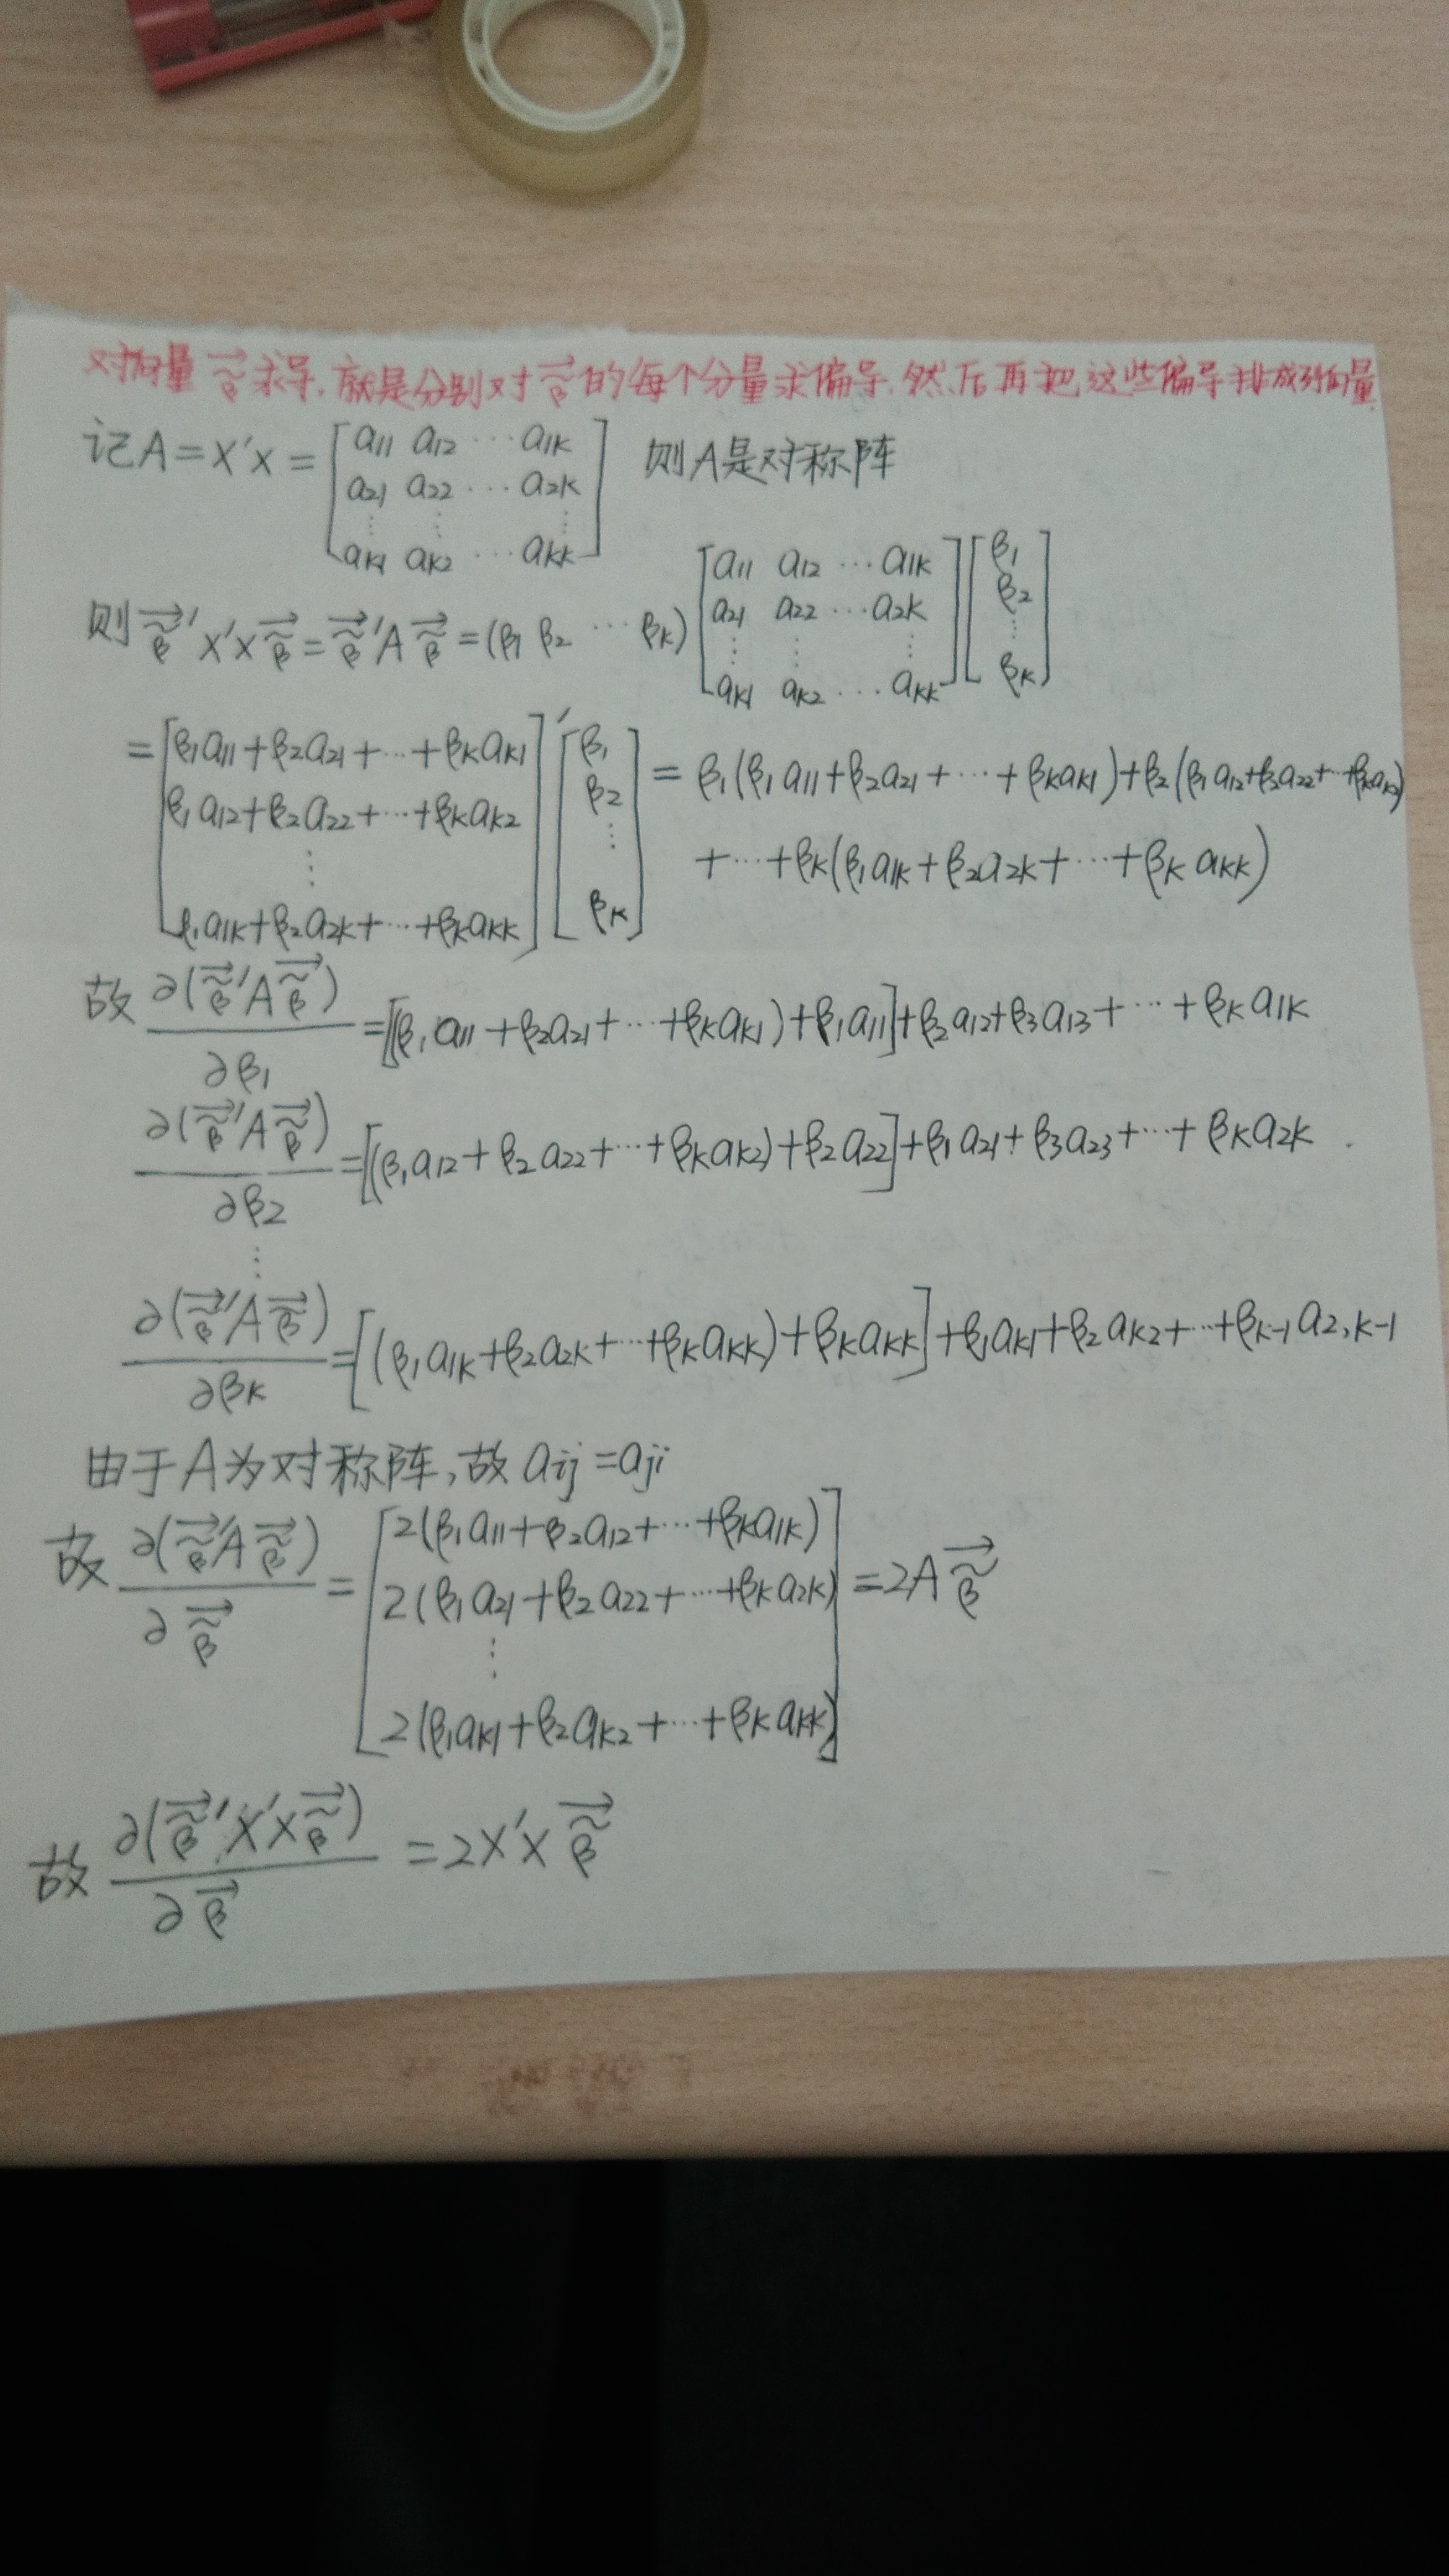 对向量 β⃗̃ 求导,就是分别对 β⃗̃ 的每个分量求偏导,然后再把这些偏导排成列向量.
记A=X'X=[a11 a12 ⋯ a1k; a21 a22 ⋯ a2k; ⋮ ⋮ ⋮; ak1 ak2 ⋯ akk] 则A是对称阵
则 β⃗̃'X'Xβ⃗̃=β⃗̃'Aβ⃗̃=(β1 β2 ⋯ βk)[a11 a12 ⋯ a1k; a21 a22 ⋯ a2k; ⋮ ⋮ ⋮; ak1 ak2 ⋯ akk][β1; β2; ⋮; βk]
=[β1a11+β2a21+⋯+βkak1; β1a12+β2a22+⋯+βkak2; ⋮; β1a1k+β2a2k+⋯+βkakk]'[β1; β2; ⋮; βk]=β1(β1a11+β2a21+⋯+βkak1)+β2(β1a12+β2a22+⋯+βkak2)
+⋯+βk(β1a1k+β2a2k+⋯+βkakk)
故 ∂(β⃗̃'Aβ⃗̃)/∂β1=[(β1a11+β2a21+⋯+βkak1)+β1a11]+β2a12+β3a13+⋯+βka1k
∂(β⃗̃'Aβ⃗̃)/∂β2=[(β1a12+β2a22+⋯+βkak2)+β2a22]+β1a21+β3a23+⋯+βka2k.
⋮
∂(β⃗̃'Aβ⃗̃)/∂βk=[(β1a1k+β2a2k+⋯+βkakk)+βkakk]+β1ak1+β2ak2+⋯+βk-1a2,k-1
由于A为对称阵,故 aij=aji
故 ∂(β⃗̃'Aβ⃗̃)/∂β⃗̃=[2(β1a11+β2a12+⋯+βka1k); 2(β1a21+β2a22+⋯+βka2k); ⋮; 2(β1ak1+β2ak2+⋯+βkakk)]=2Aβ⃗̃
故 ∂(β⃗̃'X'Xβ⃗̃)/∂β⃗̃=2X'Xβ⃗̃